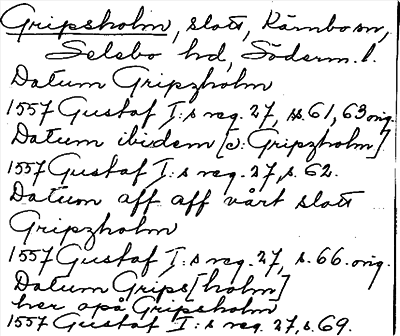 Gripsholm, slott, Kärnbo sn,
Selebo hd, Söderm. l.
Datum Gripzholm
1557 Gustaf I:s reg. 27, ss. 61, 63 orig.
Datum ibidem [ɔ: Gripzholm]
1557 Gustaf I:s reg. 27, s. 62.
Datum aff aff vårt slott
Gripzholm
1557 Gustaf I:s reg. 27, s. 66. orig.
Datum Grips[holm]
her opå Gripsholm
1557 Gustaf I:s reg. 27, s. 69.